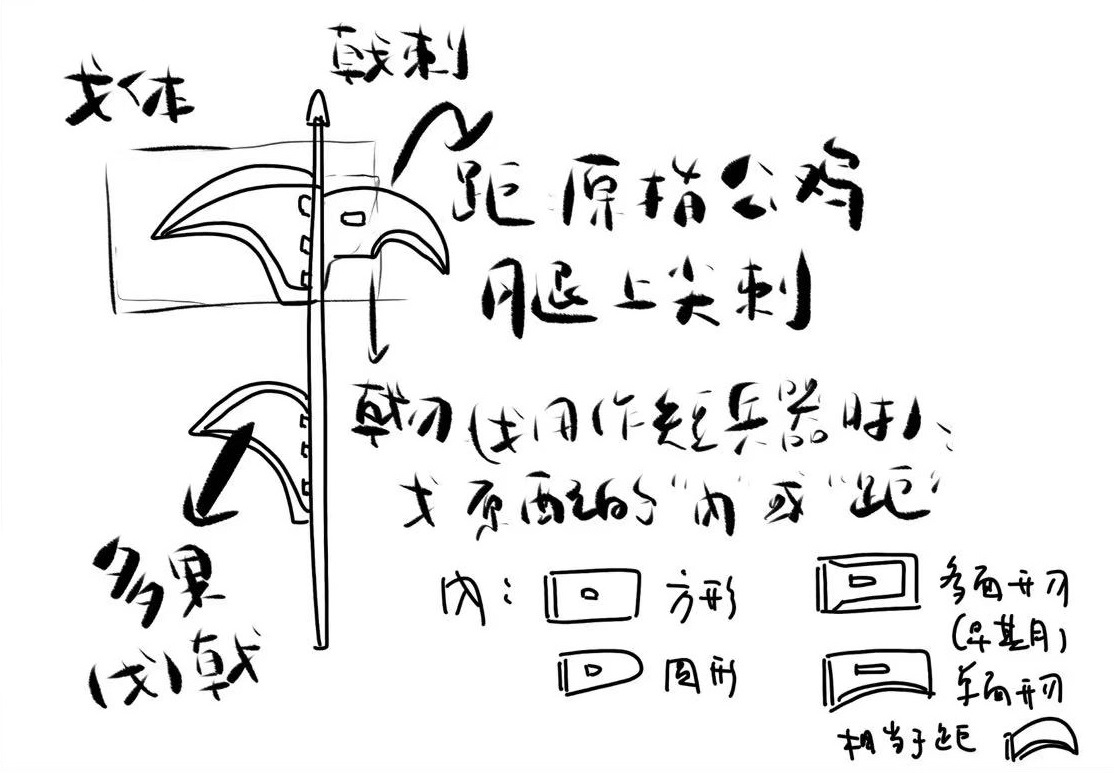 戟刺
戈体
距原指公鸡
腿上尖刺
戟刃(戈用作短兵器时)、
戈原配的“内”或“距”
多果
(戈)戟
内:
方形
圆形
多面开刃
(早期)
单面开刃
相当于距